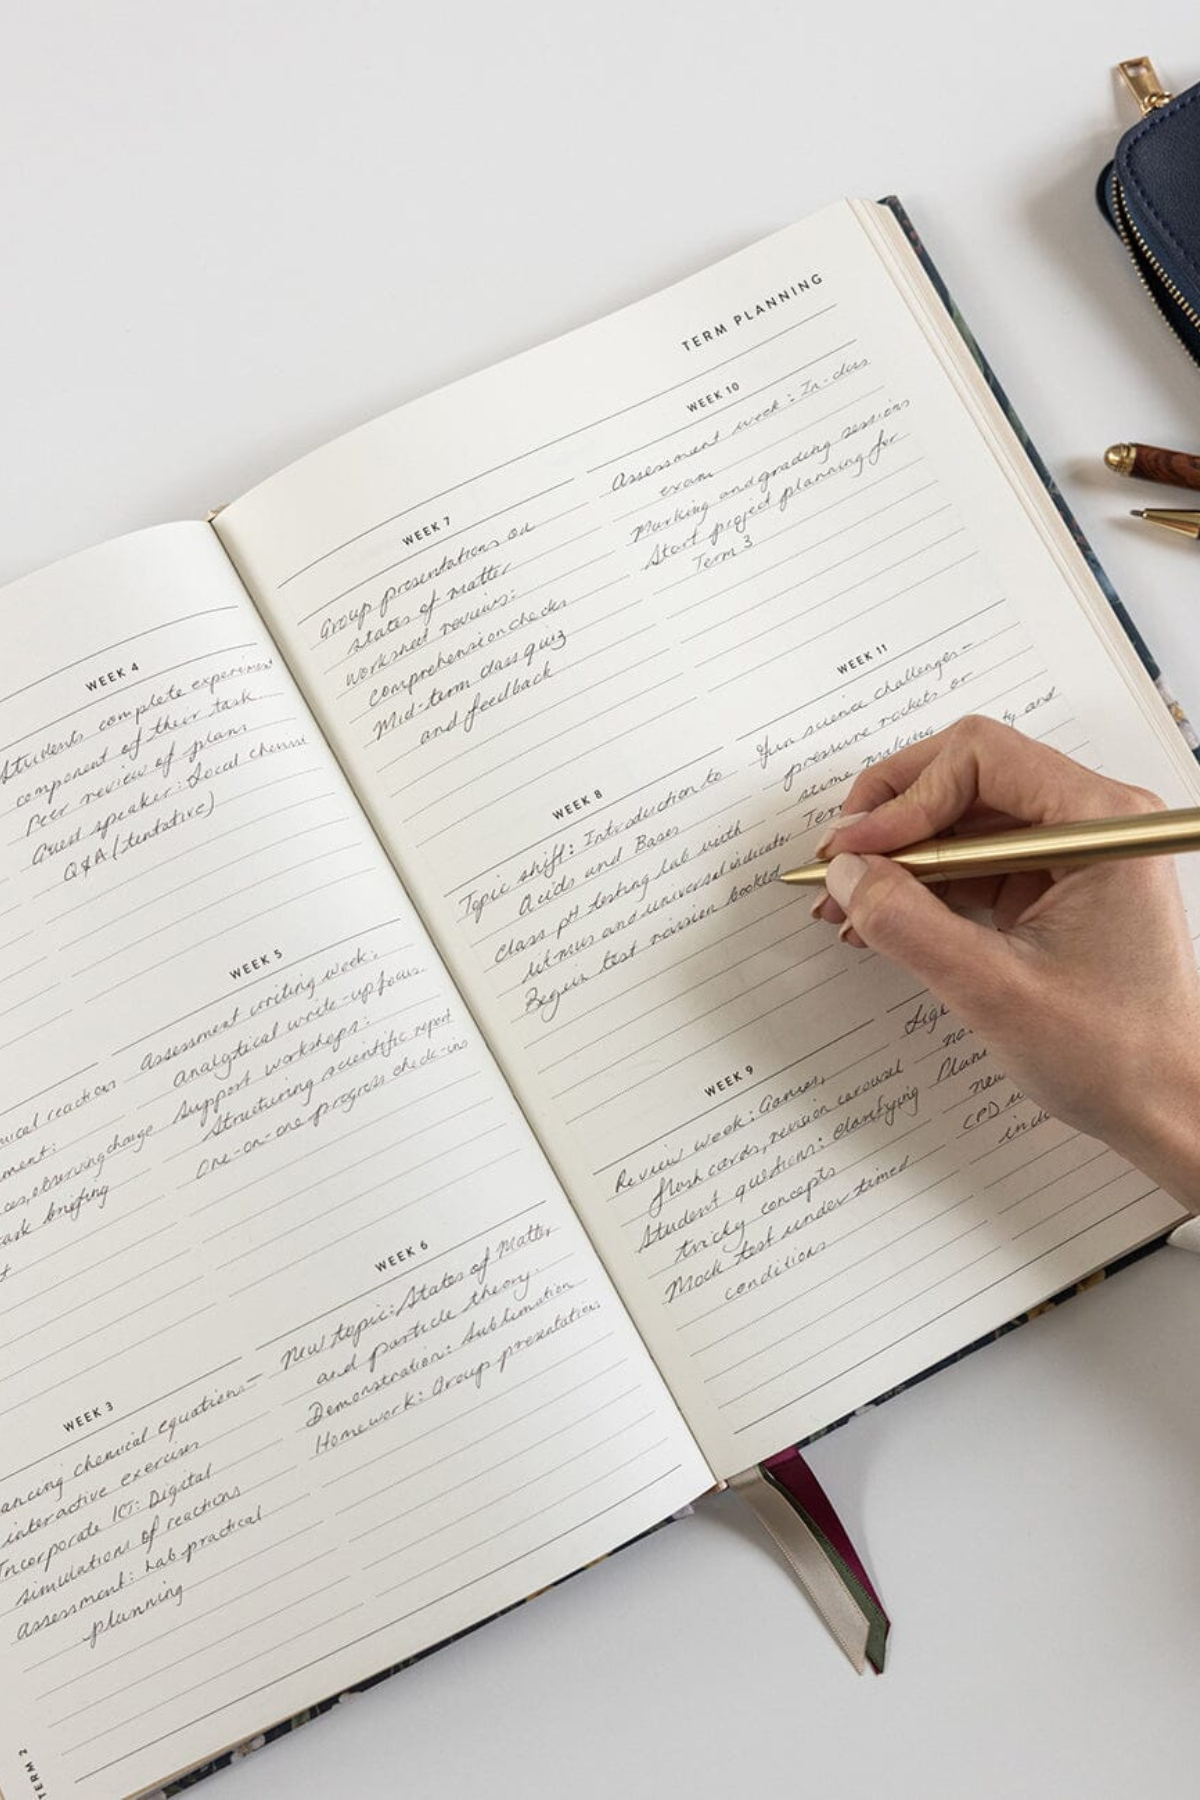 WEEK 4
Students complete experiment
component of their task
Peer review of plans
Guest speaker: Local chemist
Q&A (tentative)
ical reactions
ment:
observing change
task briefing
WEEK 5
Assessment writing week:
analytical write-up focus.
Support workshops:
Structuring scientific report
One-on-one progress check-ins
WEEK 3
ancing chemical equations -
interactive exercises
Incorporate ICT: Digital
simulations of reactions
assessment: Lab practical
planning
WEEK 6
New topic: States of Matter
and particle theory.
Demonstration: Sublimation
Homework: Group presentations
TERM 2
TERM PLANNING
WEEK 7
Group presentations on
states of matter
worksheet reviews:
comprehension checks
Mid-term class quiz
and feedback
WEEK 8
Topic shift: Introduction to
Acids and Bases
Class pH testing lab with
litmus and universal indicator
Begin test revision booklet
WEEK 9
Review week: Games,
flash cards, revision carousel
Student questions: clarifying
tricky concepts
Mock test under timed
conditions
WEEK 10
Assessment week: In-class
exam
Marking and grading sessions
Start project planning for
Term 3
WEEK 11
Fun science challenges -
pressure rockets or
slime making
ty and
Term
Plan
new
CPD